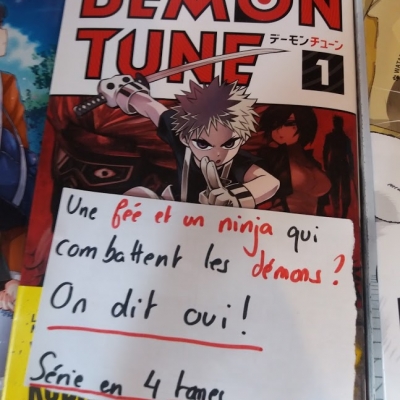 DEMON
TUNE
デーモンチューン
1
Une fée et un ninja qui
combattent les démons?
On dit oui!
Série en 4 tomes